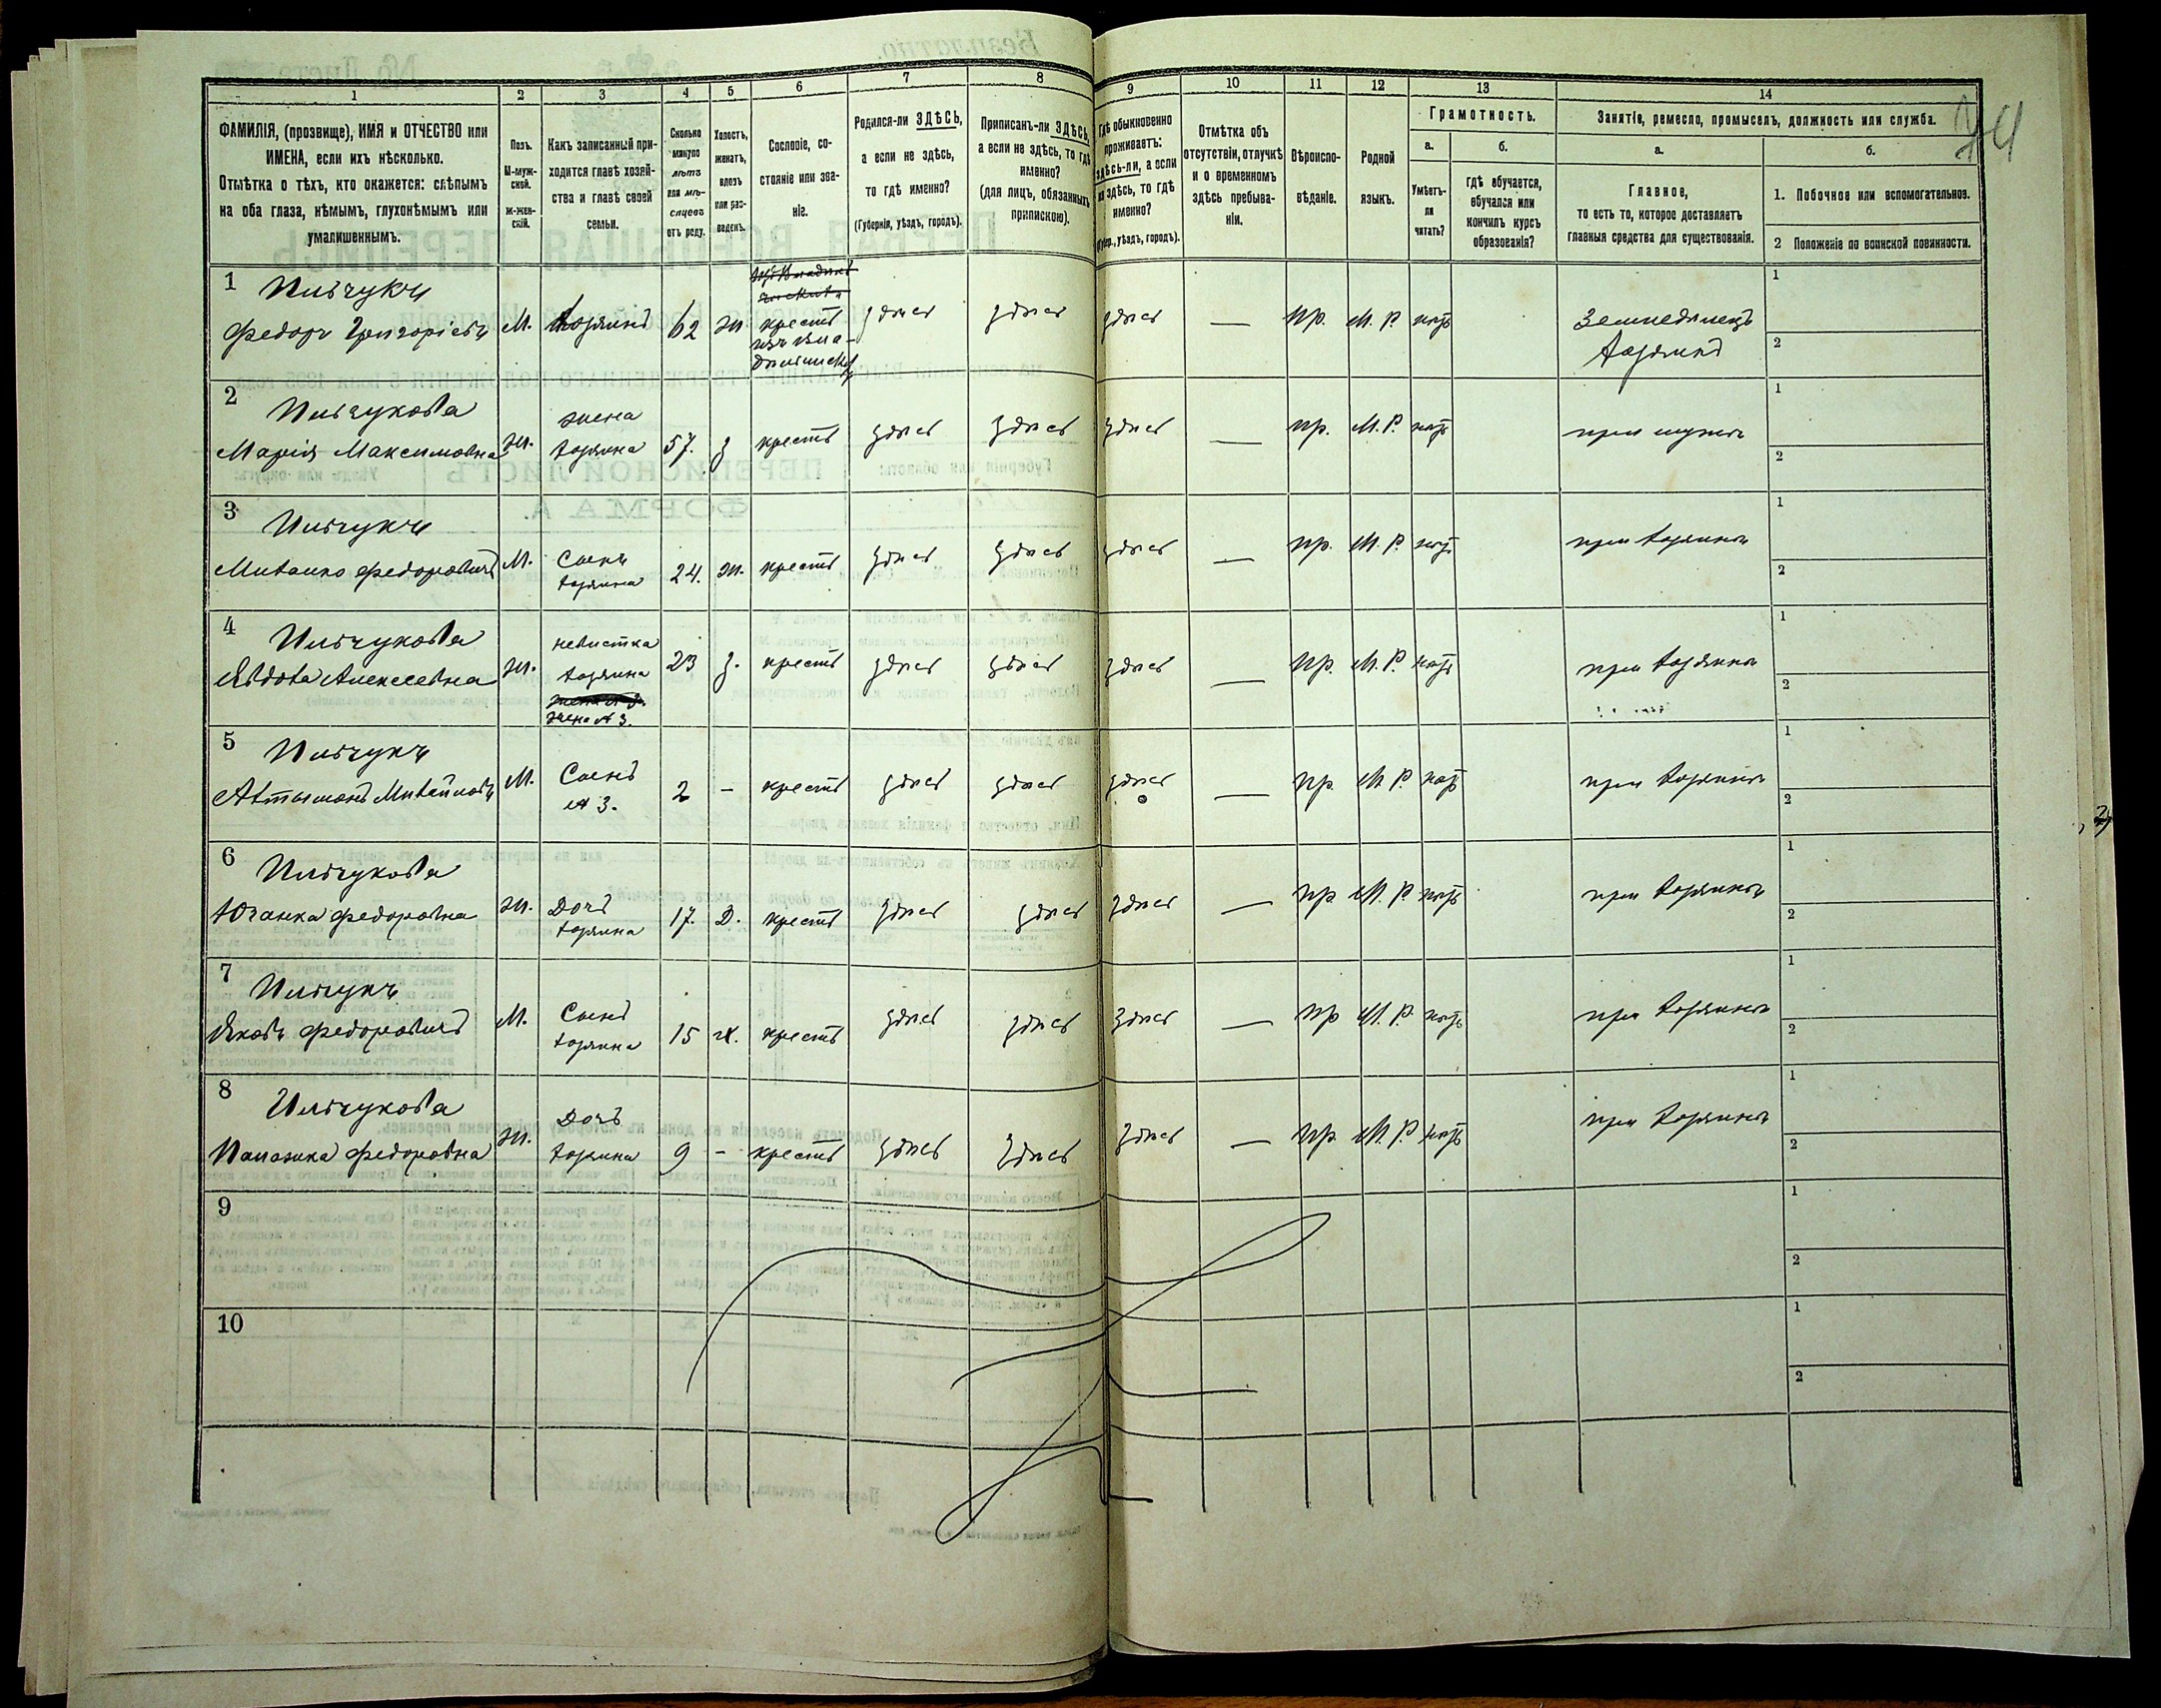 74
1 2 3 4 5 6 7 8 9 10 11 12 13 14
ФАМИЛІЯ, (прозвище), ИМЯ и ОТЧЕСТВО или
ИМЕНА, если ихъ нѣсколько.
Отмѣтка о тѣхъ, кто окажется: слѣпымъ
на оба глаза, нѣмымъ, глухонѣмымъ или
умалишеннымъ.
Полъ.
М-муж-
ской.
Ж-жен-
скій.
Какъ записанный при-
ходится главѣ хозяй-
ства и главѣ своей
семьи.
Сколько
минуло
лѣтъ
или мѣ-
сяцевъ
отъ роду.
Холостъ,
женатъ,
вдовъ
или раз-
веденъ.
Сословіе, со-
стояніе или зва-
ніе.
Родился-ли ЗДѢСЬ,
а если не здѣсь,
то гдѣ именно?
(Губернія, уѣздъ, городъ).
Приписанъ-ли ЗДѢСЬ,
а если не здѣсь, то гдѣ
именно?
(для лицъ, обязанныхъ
припискою).
Гдѣ обыкновенно
проживаетъ:
здѣсь-ли, а если
не здѣсь, то гдѣ
именно?
(Губер., уѣздъ, городъ).
Отмѣтка объ
отсутствіи, отлучкѣ
и о временномъ
здѣсь пребыва-
ніи.
Вѣроиспо-
вѣданіе.
Родной
языкъ.
Грамотность.
а.
Умѣетъ-
ли
читать?
б.
гдѣ обучается,
обучался или
кончилъ курсъ
образованія?
Занятіе, ремесло, промыселъ, должность или служба.
а.
Главное,
то есть то, которое доставляетъ
главныя средства для существованія.
б.
1. Побочное или вспомогательное.
2 Положеніе по воинской повинности.
1 Ильчукъ
Федоръ Григоріевъ М. хозяинъ 62 ж. крест
изъ вла-
дѣльческ
здѣсь здѣсь здѣсь — пр. М. Р. нѣтъ Земледѣлецъ
хозяинъ
1
2
2 Ильчукова
Марія Максимовна ж. жена
хозяина 57. з крест здѣсь здѣсь здѣсь — пр. М. Р. нѣтъ при мужѣ
1
2
3 Ильчукъ
Михайло Федоровичъ М. Сынъ
хозяина 24. ж. крест здѣсь здѣсь здѣсь — пр. М. Р. нѣтъ при хозяинѣ
1
2
4 Ильчукова
Явдоха Алексеевна ж. невистка
хозяина
жена № 3. 23 з. крест здѣсь здѣсь здѣсь — пр. М. Р. нѣтъ при хозяинѣ
1
2
5 Ильчукъ
Автымонъ Михайловъ М. Сынъ
№ 3. 2 - крест здѣсь здѣсь здѣсь — пр. М. Р. нѣтъ при хозяинѣ
1
2
6 Ильчукова
Юганка Федоровна ж. Дочъ
хозяина 17. Д. крест здѣсь здѣсь здѣсь — пр М. Р нѣтъ при хозяинѣ
1
2
7 Ильчукъ
Яковъ Федоровичъ М. Сынъ
хозяина 15 х. крест здѣсь здѣсь здѣсь — пр М. Р. нѣтъ при хозяинѣ
1
2
8 Ильчукова
Палазика Федоровна ж. Дочъ
хозяина 9 - крест здѣсь здѣсь здѣсь — пр. М. Р. нѣтъ при хозяинѣ
1
2
9
1
2
10
1
2